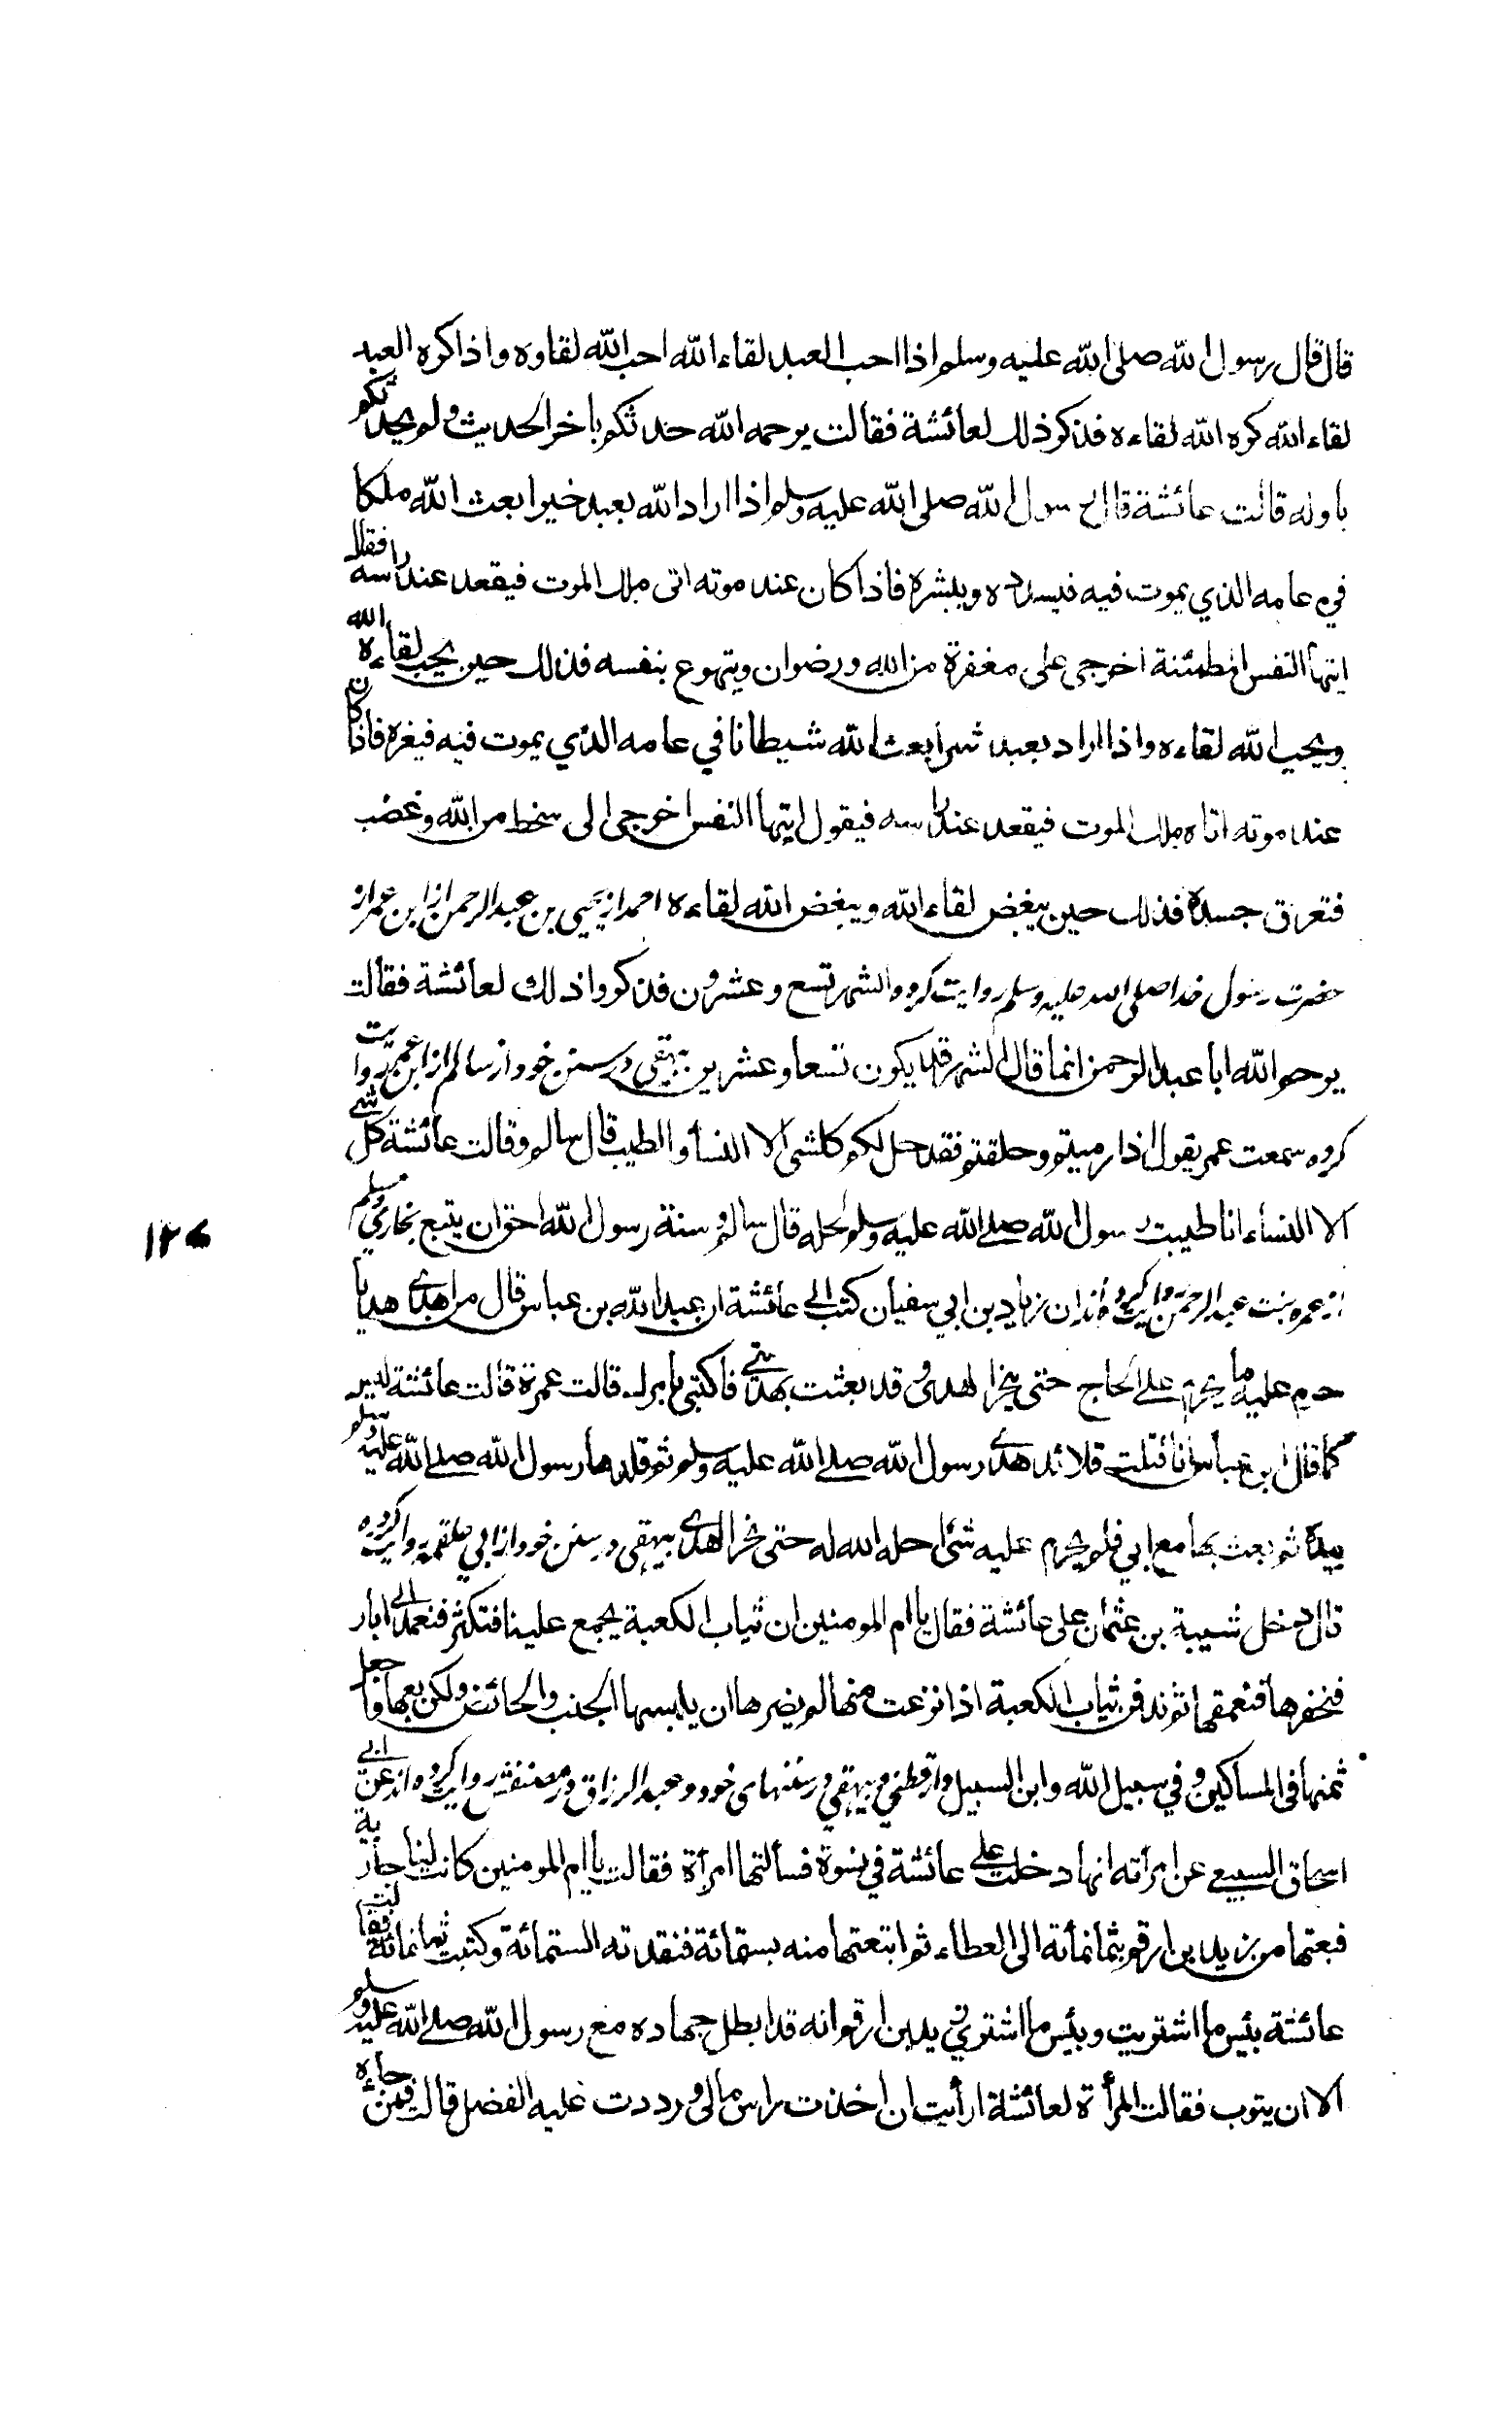 قال قال رسول الله صلى الله عليه وسلم اذا احب العبد لقاء الله احب الله لقاوه واذا كره العبد
لقاء الله كره الله لقاءه فذكر ذلك لعائشة فقالت يرحمه الله حدثكم باخر الحديث ولم يحدثكم
باوله قالت عائشة قال رسول الله صلى الله عليه وسلم اذا اراد الله بعبد خيرا بعث الله ملكا
في عامه الذي يموت فيه فيسدده ويبشره فاذا كان عند موته اتى ملك الموت فيقعد عند راسه فقال
ايتها النفس المطمئنة اخرجي على مغفرة من الله ورضوان ويتهوع بنفسه فذلك حين يحب لقاء الله
ويحب الله لقاءه واذا اراد بعبد شرا بعث الله شيطانا في عامه الذي يموت فيه فيغره فاذا كان
عند موته اتاه ملك الموت فيقعد عند راسه فيقول ايتها النفس اخرجي الى سخط من الله وغضب
فتعرق جسده فذلك حين يبغض لقاء الله ويبغض الله لقاءه احمد از يحيى بن عبد الرحمن از ابن عمر از
حضرت رسول خدا صلى الله عليه وسلم روايت كرده الشهر تسع وعشرون فذكروا ذلك لعائشة فقالت
يرحم الله ابا عبد الرحمن انما قال الشهر قد يكون تسعا وعشرين بيهقي در سنن خود از سالم از ابن عمر روايت
كرده سمعت عمر يقول اذا رميتم وحلقتم فقد حل لكم كلشي الا النسأ والطيب قال سالم وقالت عائشة كل شي
الا النساء انا طيبت رسول الله صلى الله عليه وسلم لحله قال سالم وسنة رسول الله احق ان يتبع بخاري ومسلم
از عمره بنت عبد الرحمن روايت كرده اند ان زياد بن ابي سفيان كتب الى عائشة ان عبد الله بن عباس قال من اهدى هديا
حرم عليه ما يحرم على الحاج حتى ينحر الهدي وقد بعثت بهديي فاكتبي بامرك قالت عمرة قالت عائشة ليس
كما قال ابن عباس انا فتلت قلائد هدي رسول الله صلى الله عليه وسلم ثم قلدها رسول الله صلى الله عليه وسلم
بيده ثم بعث بها مع ابي فلم يحرم عليه شئ احله الله له حتى نحر الهدي بيهقي در سنن خود از ابي علقمه روايت كرده
قال دخل شيبة بن عثمان على عائشة فقال يا ام المومنين ان ثياب الكعبة يجمع علينا فتكثر فنعمد الى ابار
فنحفرها فنعمقها ثم ندفن ثياب الكعبة اذا نزعت منها لم يضرها ان يلبسها الجنب والحائض ولكن بعها واجعل
ثمنها في المساكين وفي سبيل الله وابن السبيل دارقطني وبيهقي در سننهاى خود وعبد الرزاق در مصنفش روايت كرده اند عن ابي
اسحاق السبيعي عن امرأته انها دخلت على عائشة في نسوة فسألتها امرأة فقالت يا ام المومنين كانت لنا جارية
فبعتها من زيد بن ارقم بثمانمائة الى العطاء ثم ابتعتها منه بستمائة فنقدته الستمائة وكتبت ثمانمائة فقالت
عائشة بئس ما اشتريت وبئس ما اشترى زيد بن ارقم انه قد ابطل جهاده مع رسول الله صلى الله عليه وسلم
الا ان يتوب فقالت المرأة لعائشة ارأيت ان اخذت راس مالي ورددت عليه الفضل قالت فمن جاءه